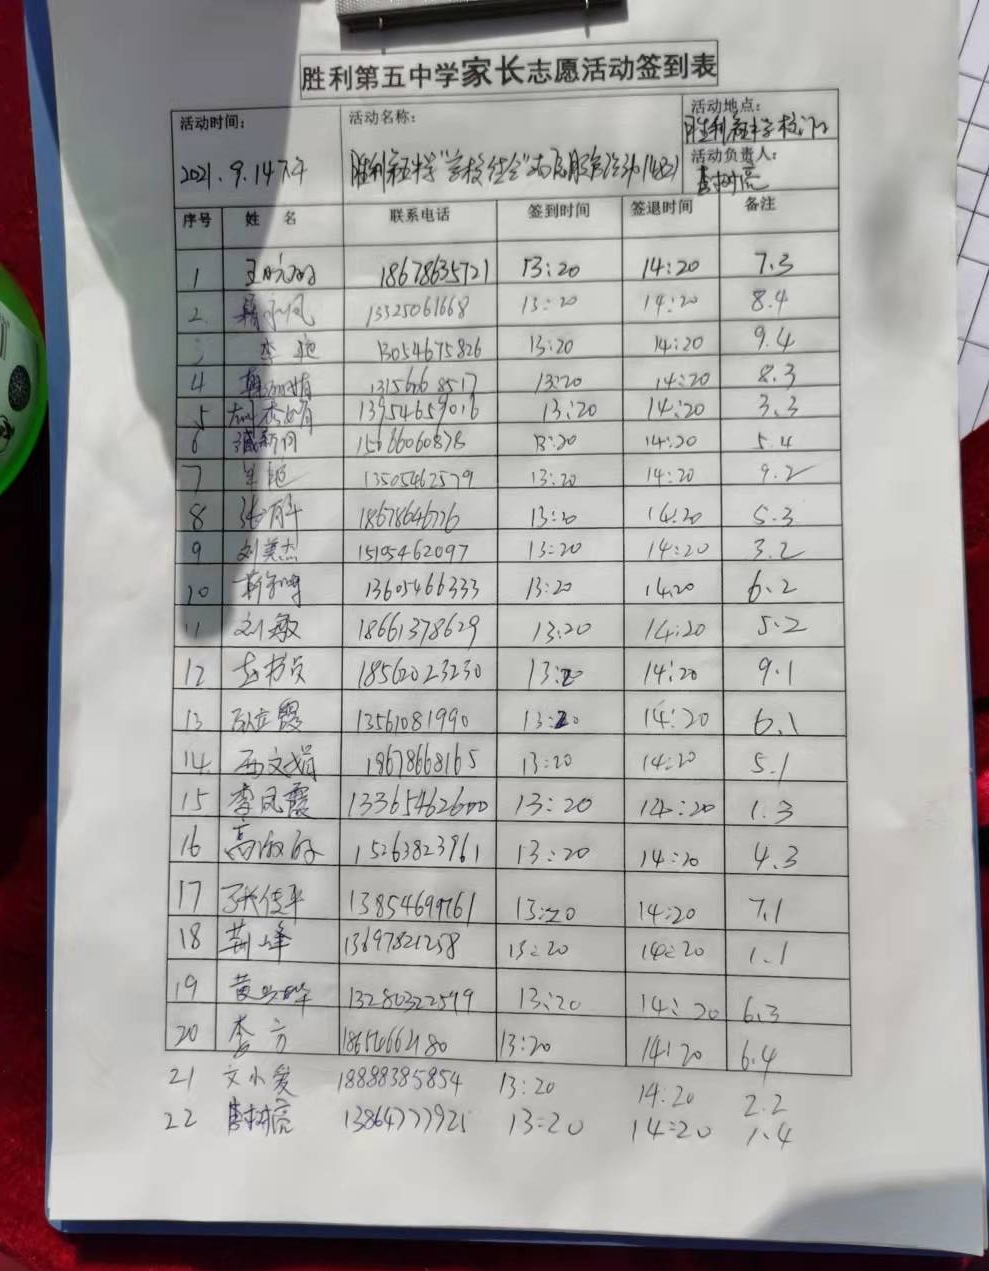 胜利第五中学家长志愿活动签到表
活动时间: 活动名称: 活动地点:
胜利五中学校门口
2021.9.14下午 胜利五中学"家校结合" 活动负责人:
李树亮
序号 姓名 联系电话 签到时间 签退时间 备注
1 18678635721 13:20 14:20 7.3
2 13325061668 13:20 14:20 8.4
李艳 13054675826 13:20 14:20 9.4
4 13156668517 13:20 14:20 8.3
5 13954659016 13:20 14:20 3.3
6 15066060878 13:20 14:20 5.4
7 13505462579 13:20 14:20 9.2
8 18678646776 13:20 14:20 5.3
9 刘美杰 15195462097 13:20 14:20 3.2
10 13605466333 13:20 14:20 6.2
11 刘敏 18661378629 13:20 14:20 5.2
12 18562023230 13:20 14:20 9.1
13 13561081990 13:20 14:20 6.1
14 18678668165 13:20 14:20 5.1
15 李凤霞 13365462600 13:20 14:20 1.3
16 15263823961 13:20 14:20 4.3
17 张佳平 13854699761 13:20 14:20 7.1
18 荆峰 13697821258 13:20 14:20 1.1
19 13280322579 13:20 14:20 6.3
20 李方 13:20 14:20 6.4
21 文小爱 18888385854 13:20 14:20 2.2
22 李树亮 13864777925 13:20 14:20 1.4